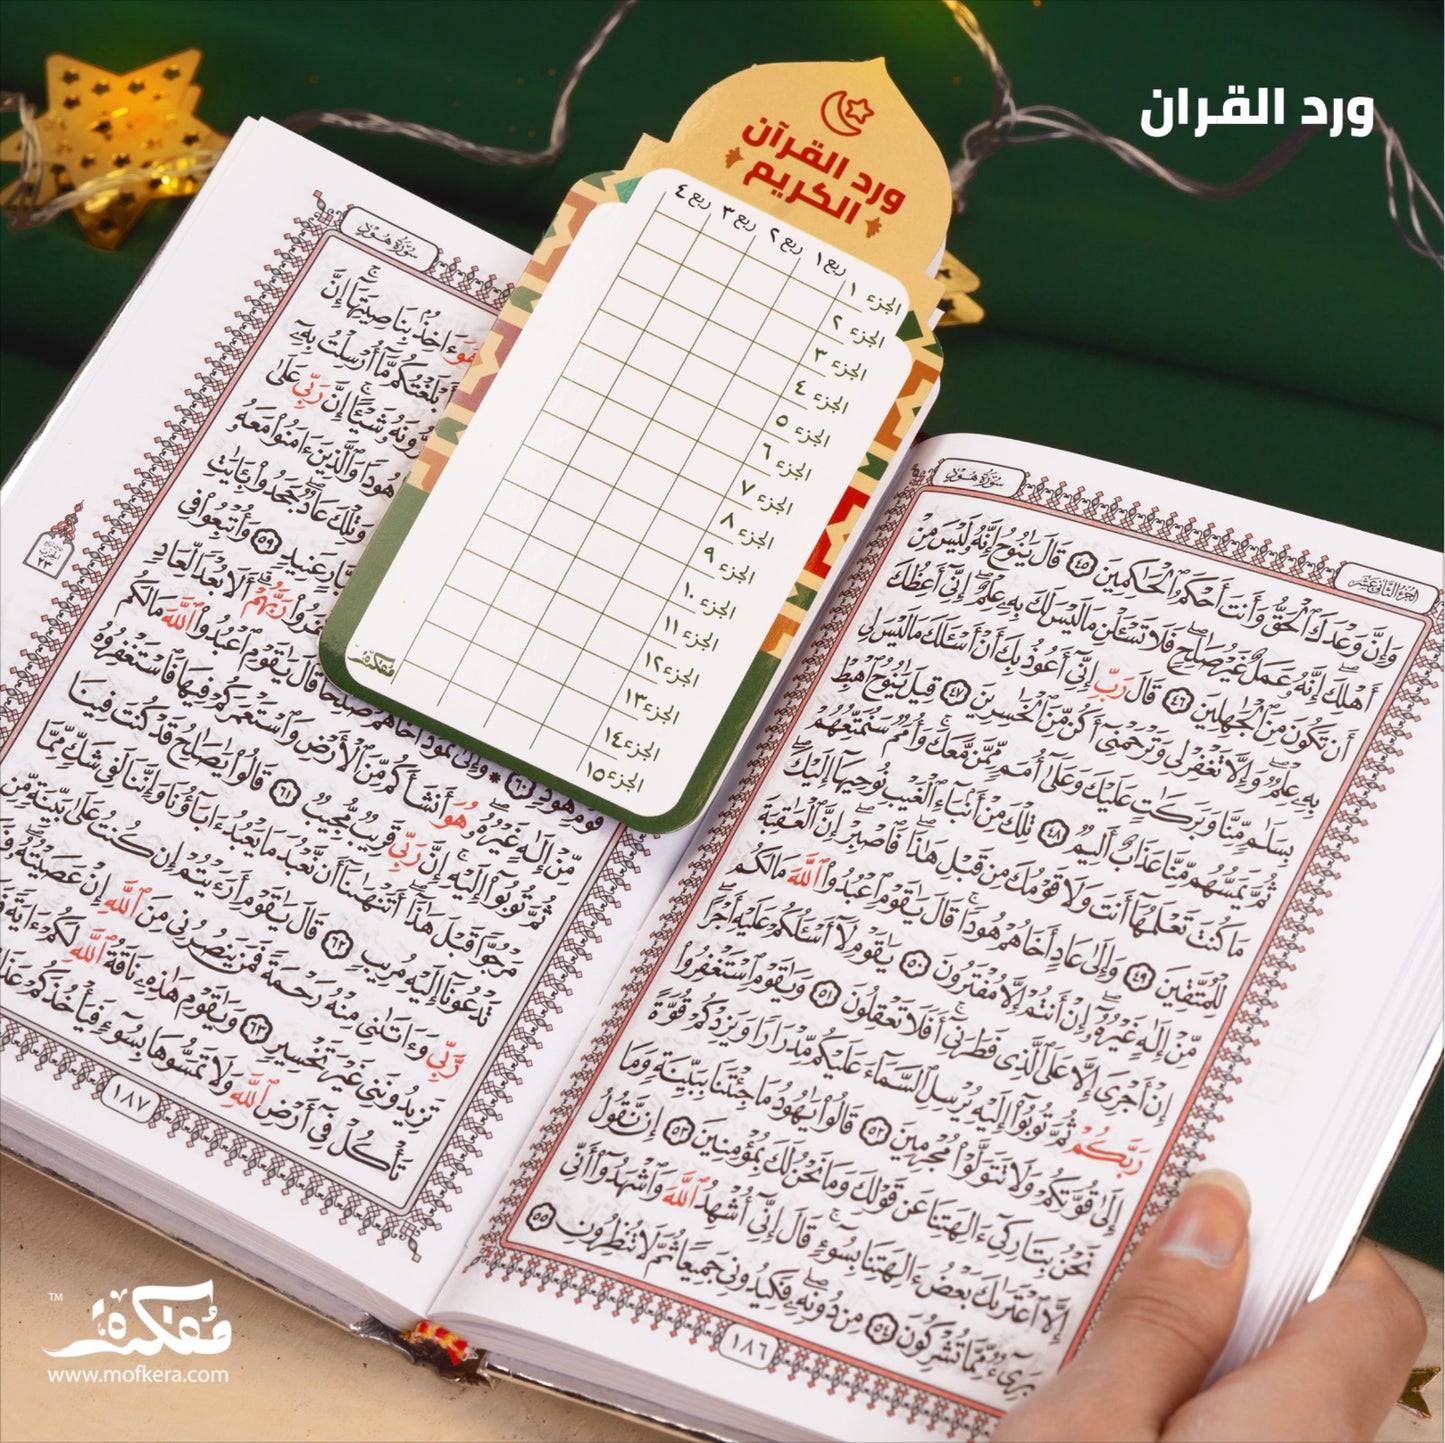 ورد القران
ورد القرآن
الكريم
ربع ١ ربع ٢ ربع ٣ ربع ٤
الجزء ١
الجزء ٢
الجزء ٣
الجزء ٤
الجزء ٥
الجزء ٦
الجزء ٧
الجزء ٨
الجزء ٩
الجزء ١٠
الجزء ١١
الجزء ١٢
الجزء ١٣
الجزء ١٤
الجزء ١٥
مُفكرة
الجزء الثاني عشر
سورة هود
وَإِنَّ وَعْدَكَ ٱلْحَقُّ وَأَنتَ أَحْكَمُ ٱلْحَٰكِمِينَ ٤٥ قَالَ يَٰنُوحُ إِنَّهُۥ لَيْسَ مِنْ
أَهْلِكَ إِنَّهُۥ عَمَلٌ غَيْرُ صَٰلِحٍ فَلَا تَسْـَٔلْنِ مَا لَيْسَ لَكَ بِهِۦ عِلْمٌ إِنِّىٓ أَعِظُكَ
أَن تَكُونَ مِنَ ٱلْجَٰهِلِينَ ٤٦ قَالَ رَبِّ إِنِّىٓ أَعُوذُ بِكَ أَنْ أَسْـَٔلَكَ مَا لَيْسَ لِى
بِهِۦ عِلْمٌ وَإِلَّا تَغْفِرْ لِى وَتَرْحَمْنِىٓ أَكُن مِّنَ ٱلْخَٰسِرِينَ ٤٧ قِيلَ يَٰنُوحُ ٱهْبِطْ
بِسَلَٰمٍ مِّنَّا وَبَرَكَٰتٍ عَلَيْكَ وَعَلَىٰٓ أُمَمٍ مِّمَّن مَّعَكَ وَأُمَمٌ سَنُمَتِّعُهُمْ
ثُمَّ يَمَسُّهُم مِّنَّا عَذَابٌ أَلِيمٌ ٤٨ تِلْكَ مِنْ أَنۢبَآءِ ٱلْغَيْبِ نُوحِيهَآ إِلَيْكَ
مَا كُنتَ تَعْلَمُهَآ أَنتَ وَلَا قَوْمُكَ مِن قَبْلِ هَٰذَا فَٱصْبِرْ إِنَّ ٱلْعَٰقِبَةَ
لِلْمُتَّقِينَ ٤٩ وَإِلَىٰ عَادٍ أَخَاهُمْ هُودًا قَالَ يَٰقَوْمِ ٱعْبُدُوا۟ ٱللَّهَ مَا لَكُم
مِّنْ إِلَٰهٍ غَيْرُهُۥٓ إِنْ أَنتُمْ إِلَّا مُفْتَرُونَ ٥٠ يَٰقَوْمِ لَآ أَسْـَٔلُكُمْ عَلَيْهِ أَجْرًا
إِنْ أَجْرِىَ إِلَّا عَلَى ٱلَّذِى فَطَرَنِىٓ أَفَلَا تَعْقِلُونَ ٥١ وَيَٰقَوْمِ ٱسْتَغْفِرُوا۟
رَبَّكُمْ ثُمَّ تُوبُوٓا۟ إِلَيْهِ يُرْسِلِ ٱلسَّمَآءَ عَلَيْكُم مِّدْرَارًا وَيَزِدْكُمْ قُوَّةً
إِلَىٰ قُوَّتِكُمْ وَلَا تَتَوَلَّوْا۟ مُجْرِمِينَ ٥٢ قَالُوا۟ يَٰهُودُ مَا جِئْتَنَا بِبَيِّنَةٍ وَمَا
نَحْنُ بِتَارِكِىٓ ءَالِهَتِنَا عَن قَوْلِكَ وَمَا نَحْنُ لَكَ بِمُؤْمِنِينَ ٥٣ إِن نَّقُولُ
إِلَّا ٱعْتَرَىٰكَ بَعْضُ ءَالِهَتِنَا بِسُوٓءٍ قَالَ إِنِّىٓ أُشْهِدُ ٱللَّهَ وَٱشْهَدُوٓا۟ أَنِّى
بَرِىٓءٌ مِّمَّا تُشْرِكُونَ ٥٤ مِن دُونِهِۦ فَكِيدُونِى جَمِيعًا ثُمَّ لَا تُنظِرُونِ ٥٥
١٨٦
سورة هود
هُوَ ءَاخِذٌۢ بِنَاصِيَتِهَآ إِنَّ
أَبْلَغْتُكُم مَّآ أُرْسِلْتُ بِهِۦٓ
شَيْـًٔا إِنَّ رَبِّى عَلَىٰ
هُودًا وَٱلَّذِينَ ءَامَنُوا۟ مَعَهُۥ
وَتِلْكَ عَادٌ جَحَدُوا۟ بِـَٔايَٰتِ
عَنِيدٍ ٥٩ وَأُتْبِعُوا۟ فِى
رَبَّهُمْ أَلَا بُعْدًا لِّعَادٍ
قَوْمِ هُودٍ ٦٠ ۞ وَإِلَىٰ ثَمُودَ أَخَاهُمْ صَٰلِحًا قَالَ يَٰقَوْمِ ٱعْبُدُوا۟ ٱللَّهَ مَا لَكُم
مِّنْ إِلَٰهٍ غَيْرُهُۥ هُوَ أَنشَأَكُم مِّنَ ٱلْأَرْضِ وَٱسْتَعْمَرَكُمْ فِيهَا فَٱسْتَغْفِرُوهُ
ثُمَّ تُوبُوٓا۟ إِلَيْهِ إِنَّ رَبِّى قَرِيبٌ مُّجِيبٌ ٦١ قَالُوا۟ يَٰصَٰلِحُ قَدْ كُنتَ فِينَا
مَرْجُوًّا قَبْلَ هَٰذَآ أَتَنْهَىٰنَآ أَن نَّعْبُدَ مَا يَعْبُدُ ءَابَآؤُنَا وَإِنَّنَا لَفِى شَكٍّ مِّمَّا
تَدْعُونَآ إِلَيْهِ مُرِيبٍ ٦٢ قَالَ يَٰقَوْمِ أَرَءَيْتُمْ إِن كُنتُ عَلَىٰ بَيِّنَةٍ مِّن
رَّبِّى وَءَاتَىٰنِى مِنْهُ رَحْمَةً فَمَن يَنصُرُنِى مِنَ ٱللَّهِ إِنْ عَصَيْتُهُۥ
تَزِيدُونَنِى غَيْرَ تَخْسِيرٍ ٦٣ وَيَٰقَوْمِ هَٰذِهِۦ نَاقَةُ ٱللَّهِ لَكُمْ ءَايَةً
تَأْكُلْ فِىٓ أَرْضِ ٱللَّهِ وَلَا تَمَسُّوهَا بِسُوٓءٍ فَيَأْخُذَكُمْ
١٨٧
مُفكرة
TM
www.mofkera.com